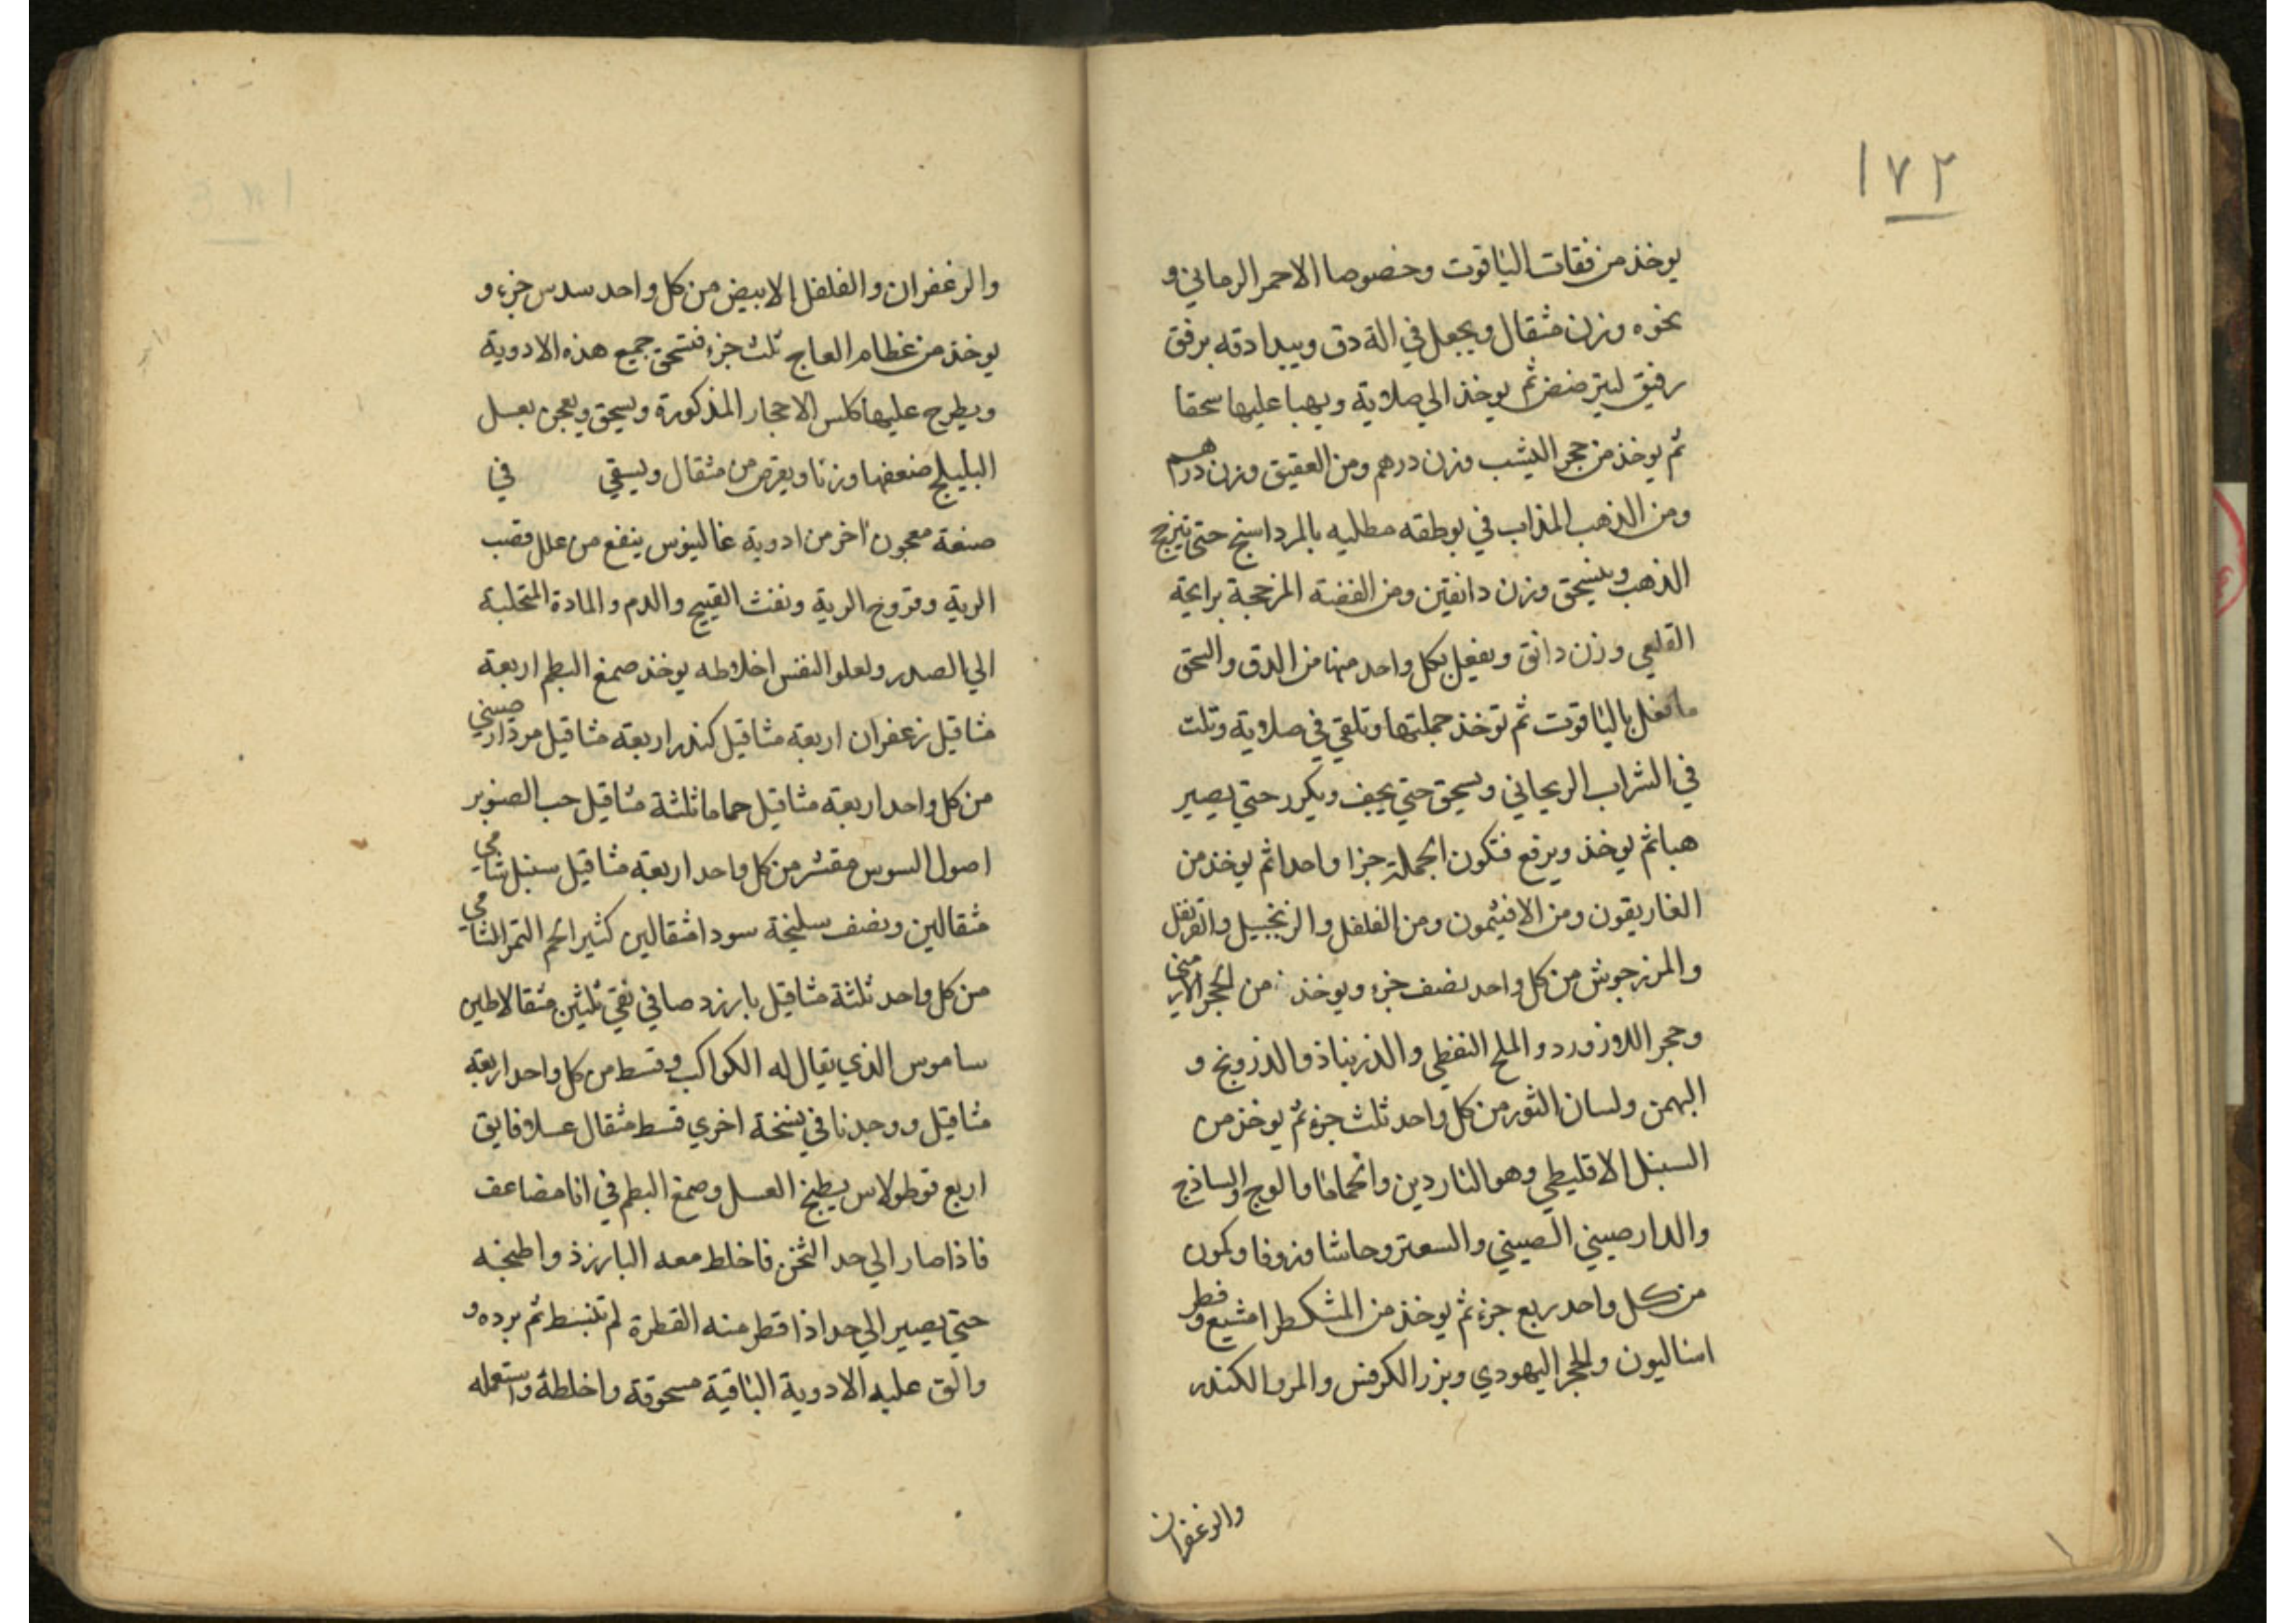 ١٧٢
يوخذ من فقات الياقوت وخصوصا الاحمر الرماني و
نحوه وزن مثقال ويجعل في الة دق ويبدا دقه برفق
رفيق ليترضض ثم يوخذ الي صلاية ويهبا عليها سحقا
ثم يوخذ من حجر اليشب وزن درهم ومن العقيق وزن درهم
ومن الذهب المذاب في بوطقه مطليه بالمرداسنج حتى تيزج
الذهب وينسحق وزن دانقين ومن الفضة المزججة برايحة
القلعي وزن دانق ويفعل بكل واحد منها من الدق والسحق
ما تفعل بالياقوت ثم توخذ جملتها وتلقي في صلاية وتلت
في الشراب الريحاني وسيحق حتي يجف ويكرر حتي يصير
هبا ثم يوخذ ويرفع فتكون الجملة جزا واحدا ثم يوخذ من
الغاريقون ومن الافثيمون ومن الفلفل والزنجبيل والقرنفل
والمرزجوش من كل واحد نصف جزء ويوخذ من الحجر الارمني
وحجر اللازورد والملح النفطي والذرنباذ والدرونج و
البهمن ولسان الثور من كل واحد ثلث جزء ثم يوخذ من
السنبل الاقليطي وهو الناردين والحماما والوج والساذج
والدارصيني الصيني والسعتر وحاشا وزوفا وكمون
من كل واحد ربع جزء ثم يوخذ من المشكطرامشيع وفطر
اساليون والحجر اليهودي وبزر الكرفس والمر والكندر
والزعفران
والزعفران والفلفل الابيض من كل واحد سدس جزء و
يوخذ من عظام العاج ثلث جزء فتسحق جميع هذه الادوية
ويطرح عليها كلس الاحجار المذكورة ويسحق ويعجن بعسل
البليلج ضعفها وزنا ويقرص من مثقال ويسقي في
صنعة معجون اخر من ادوية غالينوس ينفع من علل قصب
الرية وقروح الرية ونفث القيح والدم والمادة المتحلبة
الي الصدر ولعلو النفس اخلاطه يوخذ صمغ البطم اربعة
مثاقيل زعفران اربعة مثاقيل كندر اربعة مثاقيل مر دارصيني
من كل واحد اربعة مثاقيل حماما ثلثة مثاقيل حب الصنوبر
اصول السوس مقشر من كل واحد اربعة مثاقيل سنبل شامي
مثقالين ونصف سليخة سودا مثقالين كثيرا لحم التمر الشامي
من كل واحد ثلثة مثاقيل بارزد صافي نقي ثلثين مثقالا طين
ساموس الذي يقال له الكواكب وقسط من كل واحد اربعة
مثاقيل ووجدنا في نسخة اخري قسط مثقال عسلا فايق
اربع قوطولاس يطبخ العسل وصمغ البطم في انا مضاعف
فاذا صار الي حد الثخن فاخلط معه البارزذ واطبخه
حتي يصير الي حد اذا قطر منه القطرة لم تنبسط ثم برده و
والق عليه الادوية الباقية مسحوقة واخلطه واستعمله